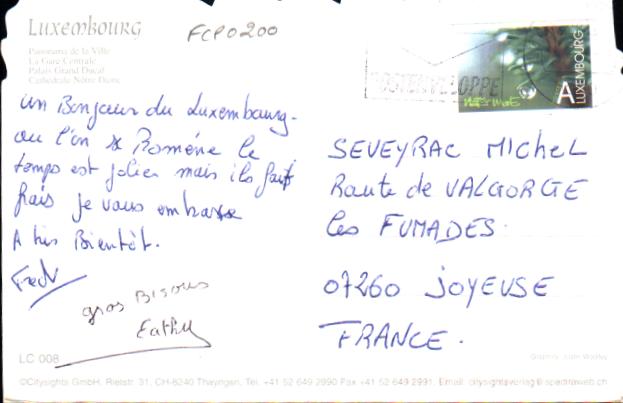 Luxembourg
FCP0200
Panorama de la Ville
La Gare Centrale
Palais Grand Ducal
Cathédrale Nôtre Dame
POSTENVELOPPE
A LUXEMBOURG
un Bonjour du Luxembourg.
ou l'on se Roméne le
temps est jolies mais ils fait
frais je vous embrasse
A très Bientôt.
Fred
gros Bisous
Cathy
SEVEYRAC Michel
Route de VALGORGE
les FUMADES
07260 JOYEUSE
FRANCE.
LC 008
©Citysights GmbH, Rietstr. 31, CH-8240 Thayngen, Tel. +41 52 649 2990 Fax +41 52 649 2991, Email: citysightsverlag@spectraweb.ch